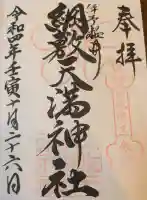 奉拝
綱敷天満神社
令和四年壬寅十月二十六日